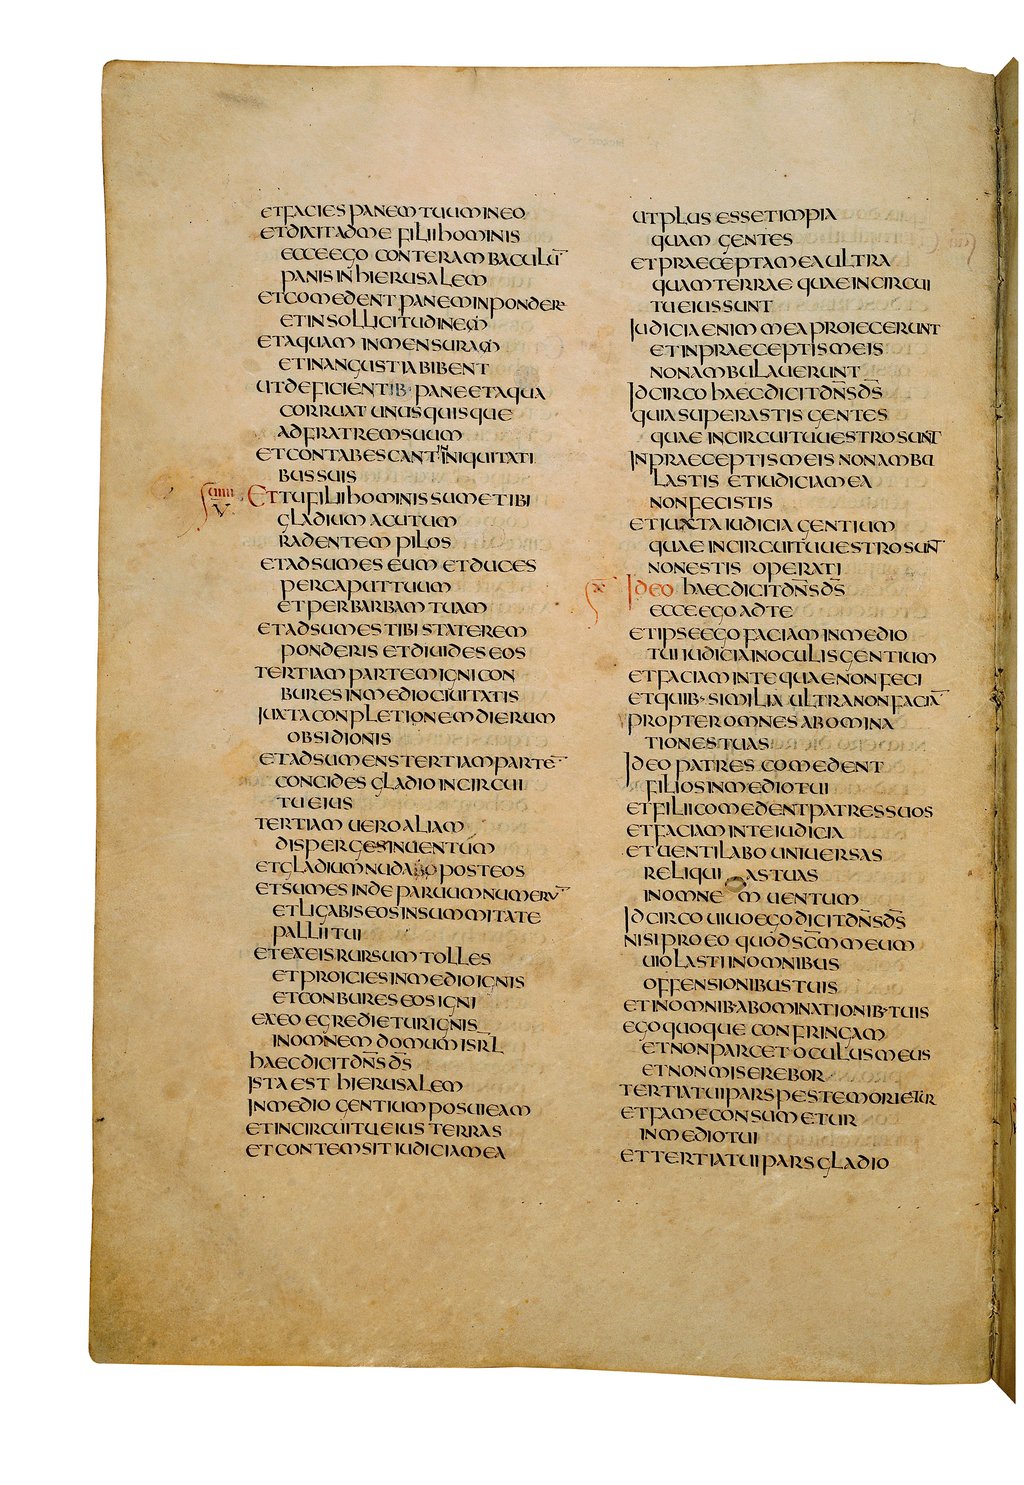 ETFACIES PANEM TUUM IN EO
ET DIXIT AD ME FILII HOMINIS
ECCE EGO CONTERAM BACULŪ
PANIS IN HIERUSALEM
ET COMEDENT PANEM IN PONDER·
ET IN SOLLICITUDINEM
ET AQUAM IN MENSURAM
ET IN ANGUSTIA BIBENT
UT DEFICIENTIB· PANE ET AQUA
CORRUAT UNUSQUISQUE
AD FRATREM SUUM
ET CONTABESCANT IN INIQUITATI
BUS SUIS
V ET TU FILII HOMINIS SUME TIBI
GLADIUM ACUTUM
RADENTEM PILOS
ET ADSUMES EUM ET DUCES
PER CAPUT TUUM
ET PER BARBAM TUAM
ET ADSUMES TIBI STATEREM
PONDERIS ET DIUIDES EOS
TERTIAM PARTEM IGNI CON
BURES IN MEDIO CIUITATIS
IUXTA CONPLETIONEM DIERUM
OBSIDIONIS
ET ADSUMENS TERTIAM PARTĒ
CONCIDES GLADIO IN CIRCUI
TU EIUS
TERTIAM UERO ALIAM
DISPERGES IN UENTUM
ET GLADIUM NUDABO POST EOS
ET SUMES INDE PARUUM NUMERŪ
ET LIGABIS EOS IN SUMMITATE
PALLII TUI
ET EX EIS RURSUM TOLLES
ET PROICIES IN MEDIO IGNIS
ET CONBURES EOS IGNI
EX EO EGREDIETUR IGNIS
IN OMNEM DOMUM ISRL̄
HAEC DICIT DN̄S D̄S
ISTA EST HIERUSALEM
IN MEDIO GENTIUM POSUI EAM
ET IN CIRCUITU EIUS TERRAS
ET CONTEMSIT IUDICIA MEA
UT PLUS ESSET IMPIA
QUAM GENTES
ET PRAECEPTA MEA ULTRA
QUAM TERRAE QUAE IN CIRCUI
TU EIUS SUNT
IUDICIA ENIM MEA PROIECERUNT
ET IN PRAECEPTIS MEIS
NON AMBULAUERUNT
IDCIRCO HAEC DICIT DN̄S D̄S
QUIA SUPERASTIS GENTES
QUAE IN CIRCUITU UESTRO SUNT
IN PRAECEPTIS MEIS NON AMBU
LASTIS ET IUDICIA MEA
NON FECISTIS
ET IUXTA IUDICIA GENTIUM
QUAE IN CIRCUITU UESTRO SUNT
NON ESTIS OPERATI
IDEO HAEC DICIT DN̄S D̄S
ECCE EGO AD TE
ET IPSE EGO FACIAM IN MEDIO
TUI IUDICIA IN OCULIS GENTIUM
ET FACIAM IN TE QUAE NON FECI
ET QUIB· SIMILIA ULTRA NON FACIĀ
PROPTER OMNES ABOMINA
TIONES TUAS
IDEO PATRES COMEDENT
FILIOS IN MEDIO TUI
ET FILII COMEDENT PATRES SUOS
ET FACIAM IN TE IUDICIA
ET UENTILABO UNIUERSAS
RELIQUI AS TUAS
IN OMNE M UENTUM
IDCIRCO UIUO EGO DICIT DN̄S D̄S
NISI PRO EO QUOD SC̄M MEUM
UIOLASTI IN OMNIBUS
OFFENSIONIBUS TUIS
ET IN OMNIB· ABOMINATIONIB· TUIS
EGO QUOQUE CONFRINGAM
ET NON PARCET OCULUS MEUS
ET NON MISEREBOR
TERTIA TUI PARS PESTE MORIETUR
ET FAME CONSUMETUR
IN MEDIO TUI
ET TERTIA TUI PARS GLADIO